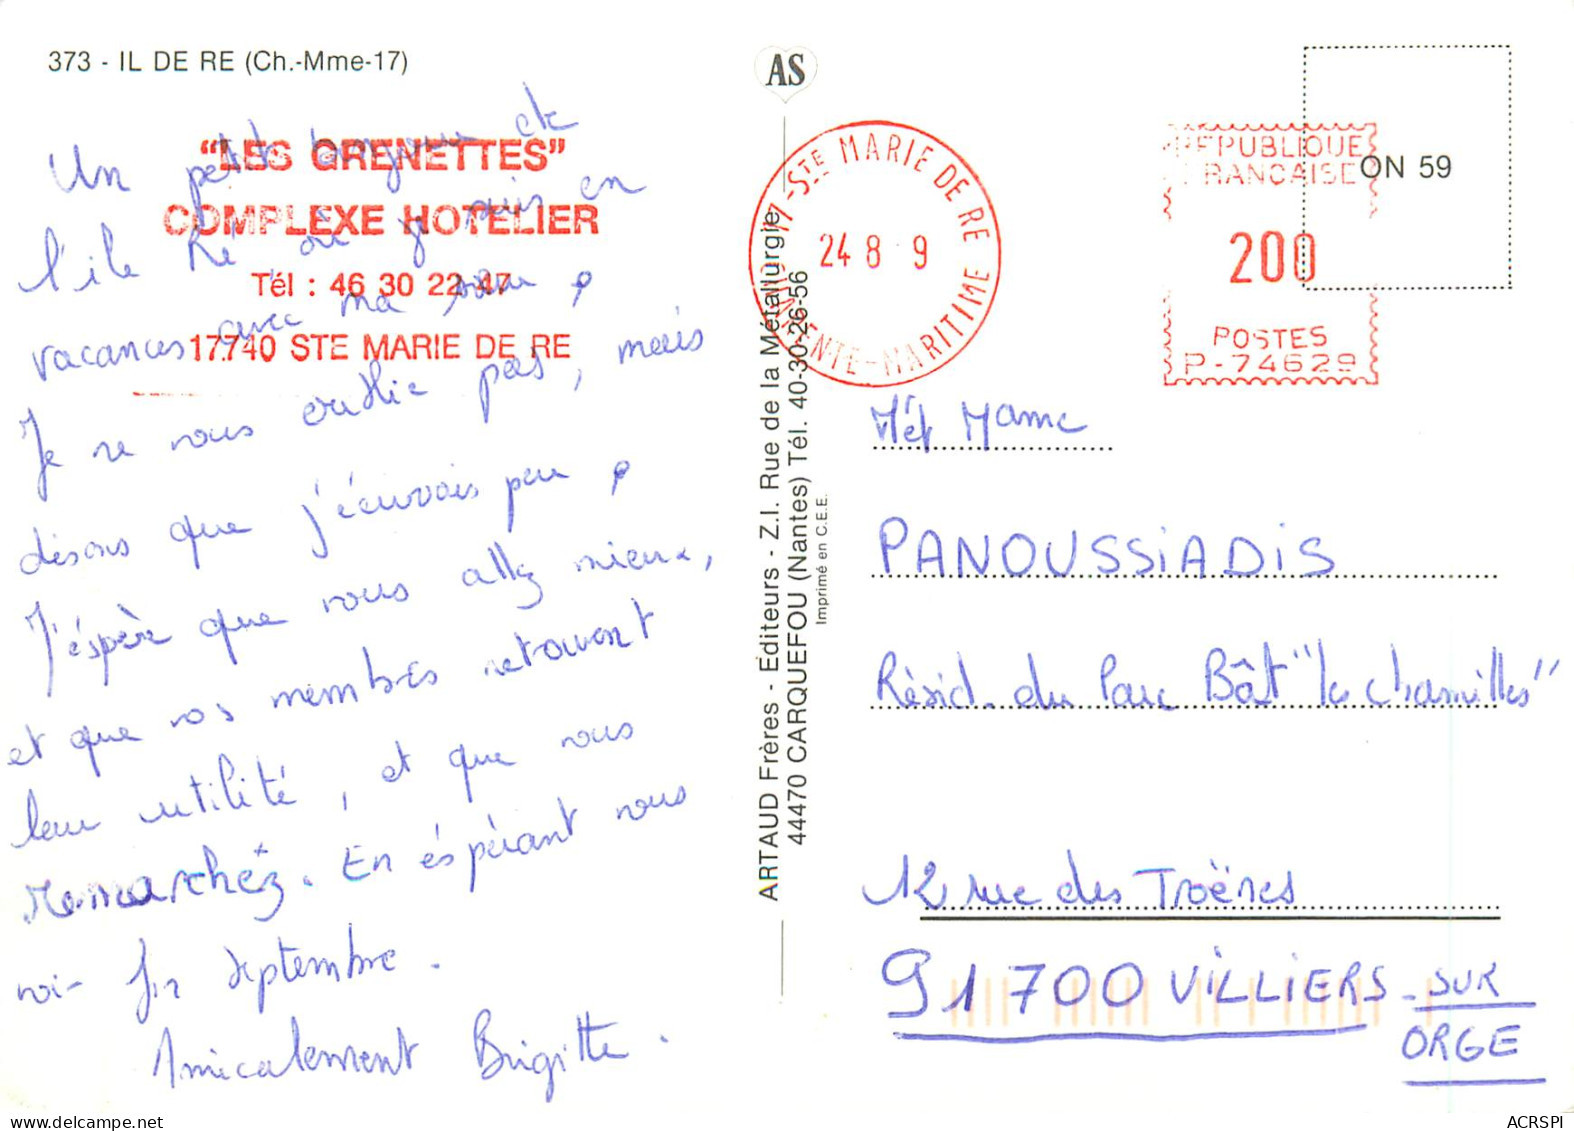 373 - IL DE RE (Ch.-Mme-17)
"LES GRENETTES"
COMPLEXE HOTELIER
Tél : 46 30 22 47
17740 STE MARIE DE RE
Un petit bonjour de
l'ile Ré où je suis en
vacances avec ma sœur,
Je ne vous oublie pas, mais
disons que j'écrivais peu,
J'éspère que vous allez mieux,
et que vos membres retrouvent
leur utilité, et que vous
remarchez. En éspérant vous
voir fin septembre.
Amicalement Brigitte.
AS
ARTAUD Frères - Éditeurs - Z.I. Rue de la Métallurgie
44470 CARQUEFOU (Nantes) Tél. 40-30-26-56
Imprimé en C.E.E.
17-STE MARIE DE RE
24 8 9
CHARENTE-MARITIME
REPUBLIQUE
FRANCAISE
200
POSTES
P-74629
ON 59
Mét Mame
PANOUSSIADIS
Résid. du Parc Bât "les charmilles"
12 rue des Troënes
91700 VILLIERS - SUR
ORGE
ACRSPI